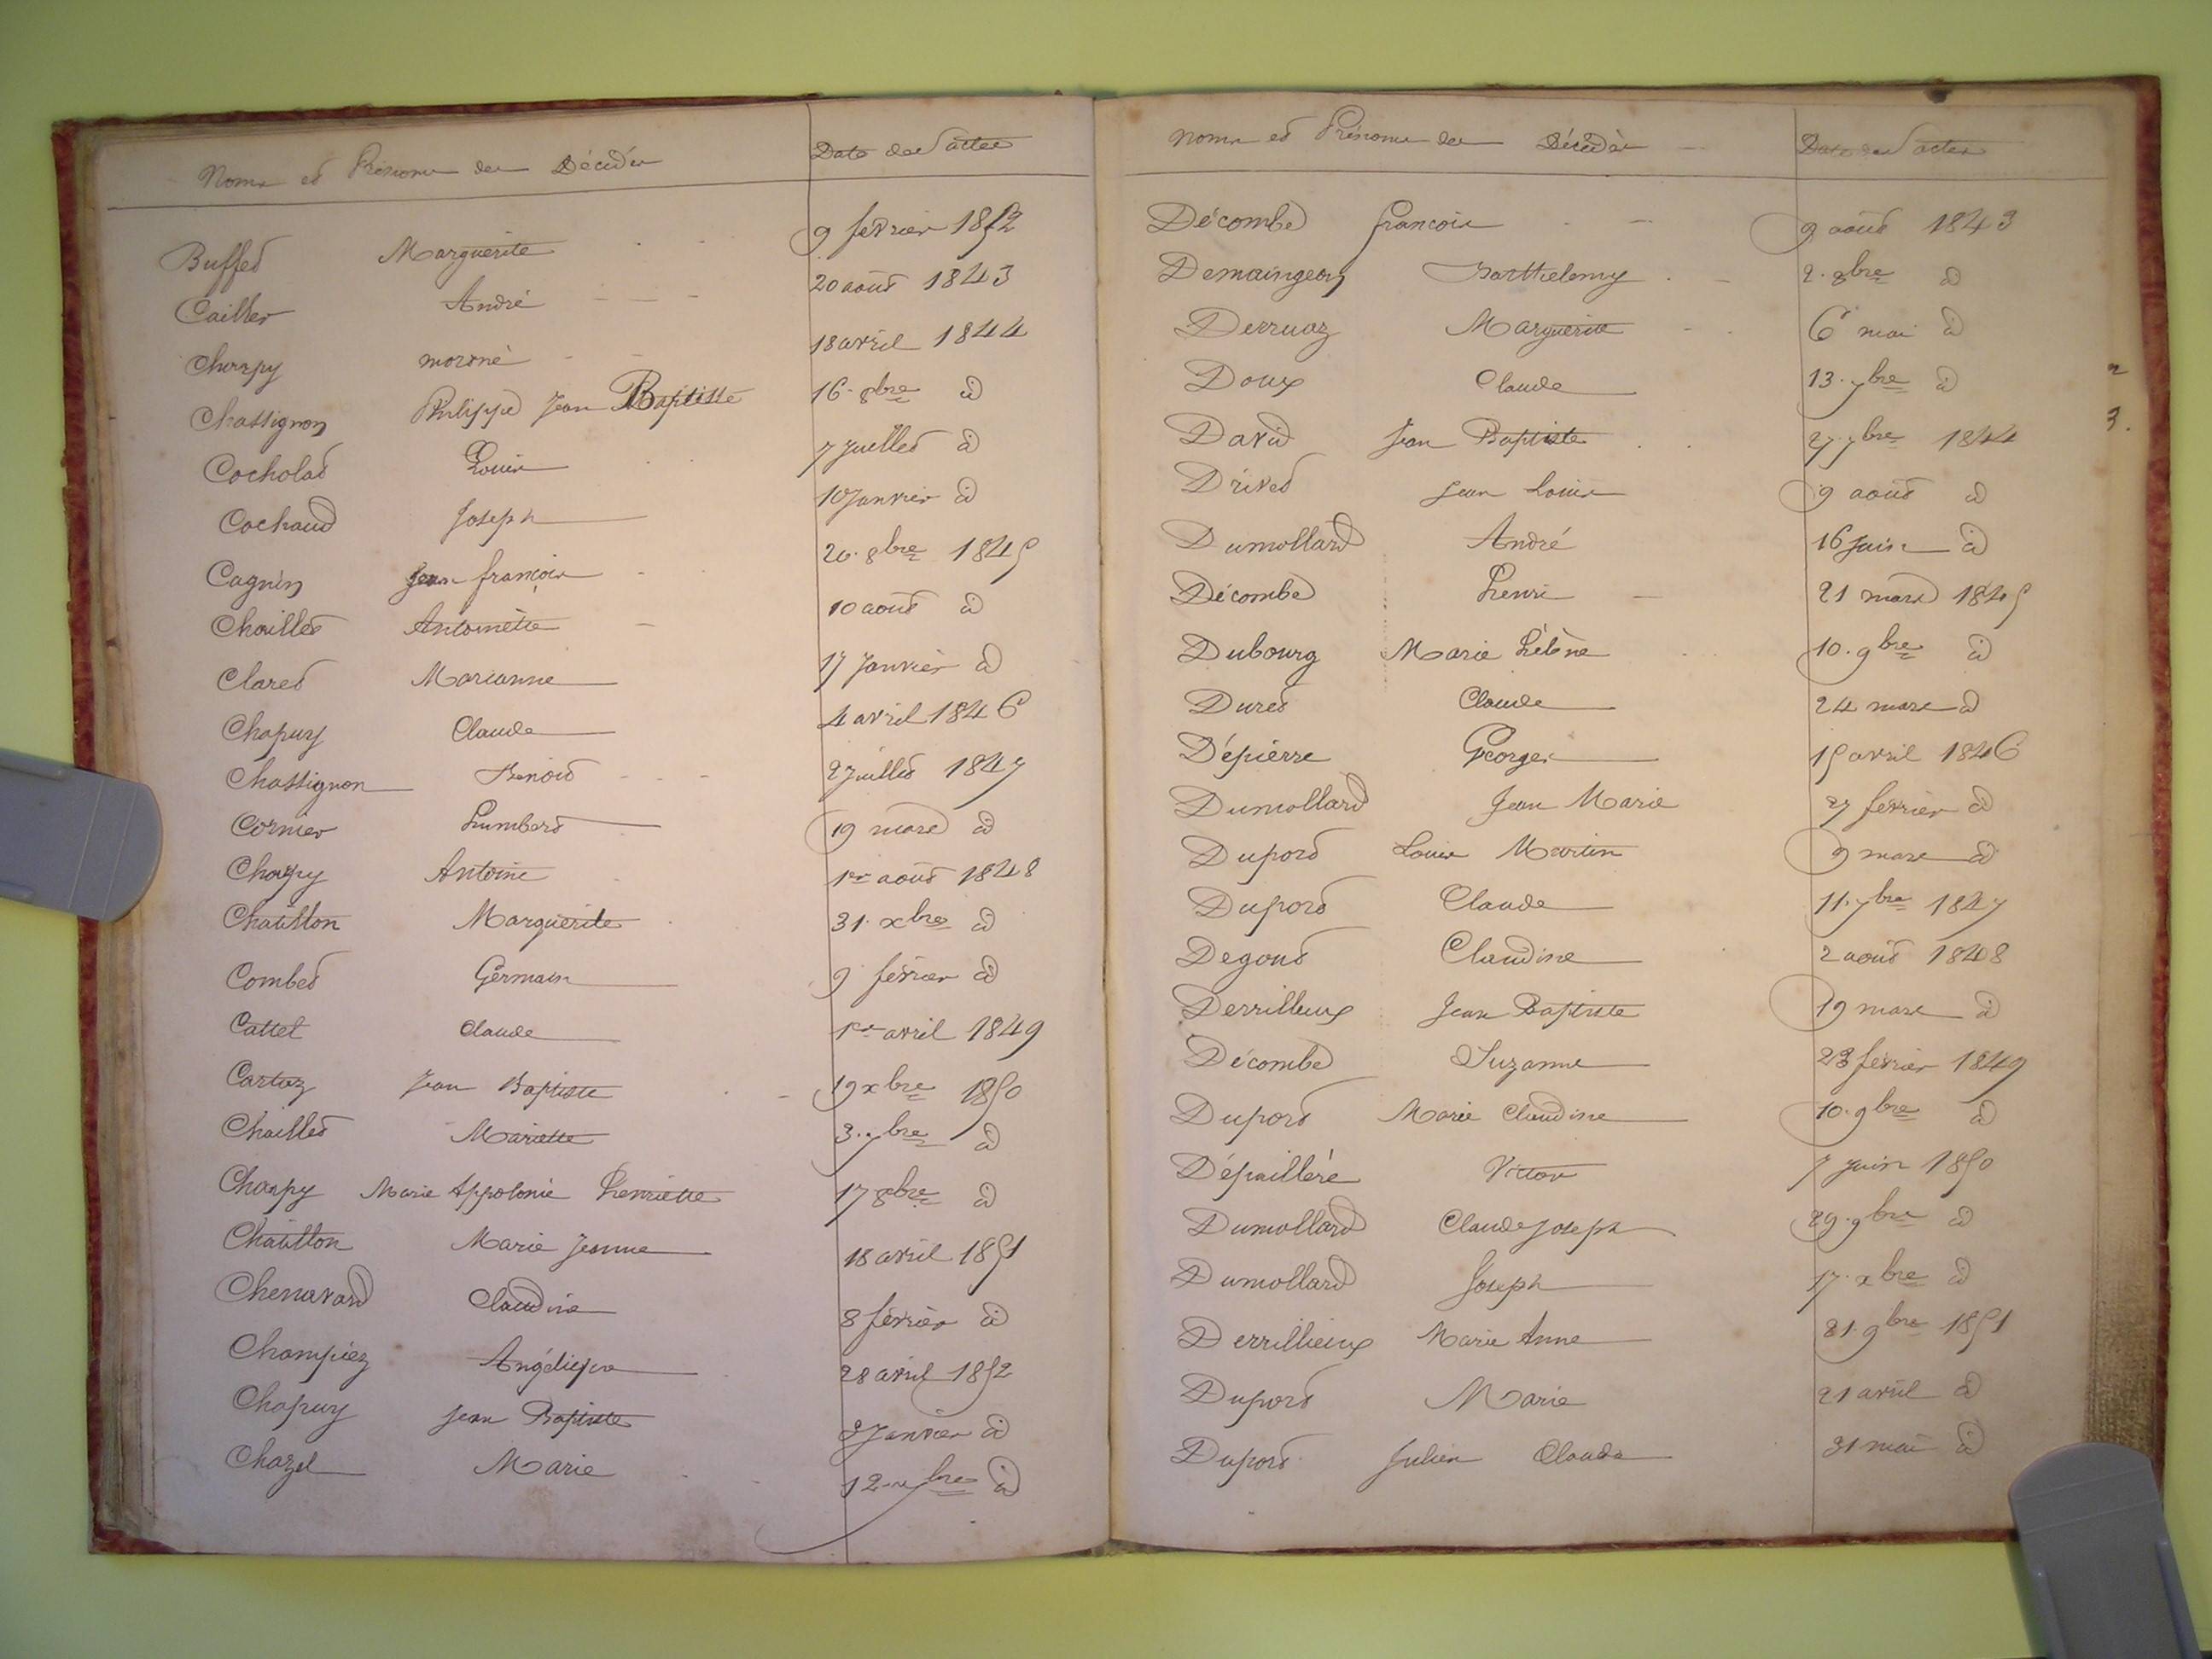 Noms et Prénoms des Décédés Date des actes
Buffet Marguerite 9 fevrier 1852
Caillet André 20 août 1843
Charpy mort né 18 avril 1844
Chassignon Philippe Jean Baptiste 16 8bre d
Cocholat Louis 7 Juillet d
Cochaud Joseph 10 Janvier d
Cagnin Jean françois 20 8bre 1845
Chaillet Antoinette 10 août d
Claret Marianne 17 Janvier d
Chapuy Claude 4 avril 1846
Chassignon Benoit 2 Juillet 1847
Cornier Humbert 19 mars d
Charpy Antoine 1er août 1848
Chatillon Marguerite 31 xbre d
Combet Germain 9 février d
Cattet Claude 1er avril 1849
Cartaz Jean Baptiste 19 xbre 1850
Chaillet Mariette 3 7bre d
Charpy Marie Appolonie henriette 17 8bre d
Chatillon Marie Jeanne 18 avril 1851
Chenavard Claudine 8 février d
Champiez Angélique 28 avril 1852
Chapuy Jean Baptiste 2 Janvier d
Chazel Marie 12 bre d
Noms et Prénoms des Décédés Date des actes
Décombe françois 9 août 1843
Demaingeon Barthelemy 2 8bre d
Derruaz Marguerite 6 mai d
Doux Claude 13 7bre d
David Jean Baptiste 27 7bre 1844
Drivet Jean Louis 9 août d
Dumollard André 16 Juin d
Décombe henri 21 mars 1845
Dubourg Marie hélène 10 9bre d
Duret Claude 24 mars d
Dépierre George 15 avril 1846
Dumollard Jean Marie 27 février d
Duport Louis Martin 9 mars d
Duport Claude 11 7bre 1847
Degout Claudine 2 août 1848
Derrilleux Jean Baptiste 19 mars d
Décombe Suzanne 23 février 1849
Duport Marie Claudine 10 9bre d
Dépaillère Victor 7 Juin 1850
Dumollard Claude Joseph 29 9bre d
Dumollard Joseph 17 xbre d
Derrillieux Marie Anne 21 9bre 1851
Duport Marie 21 avril d
Duport Julien Claude 31 mai d